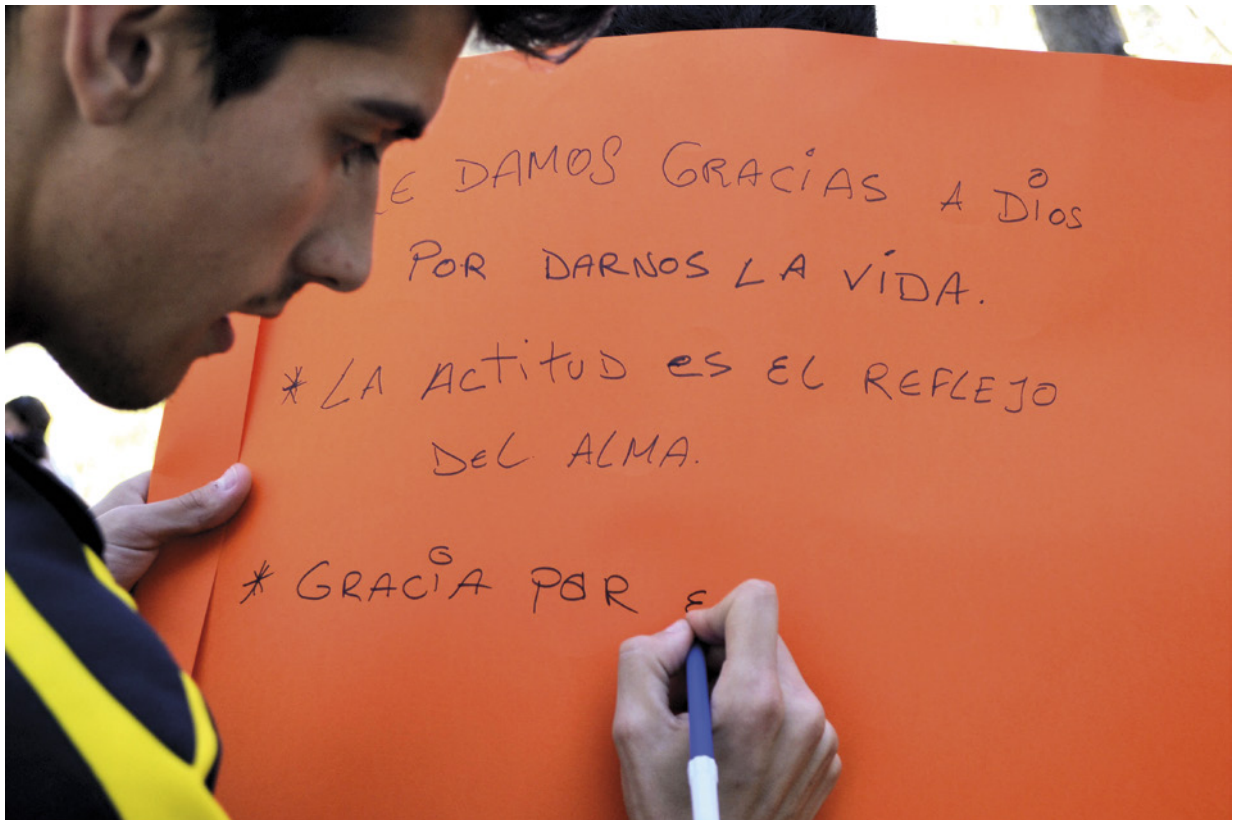 DAMOS GRACIAS A DIOS
POR DARNOS LA VIDA.
* LA ACTITUD es EL REFLEJO
DEL ALMA.
* GRACIA POR